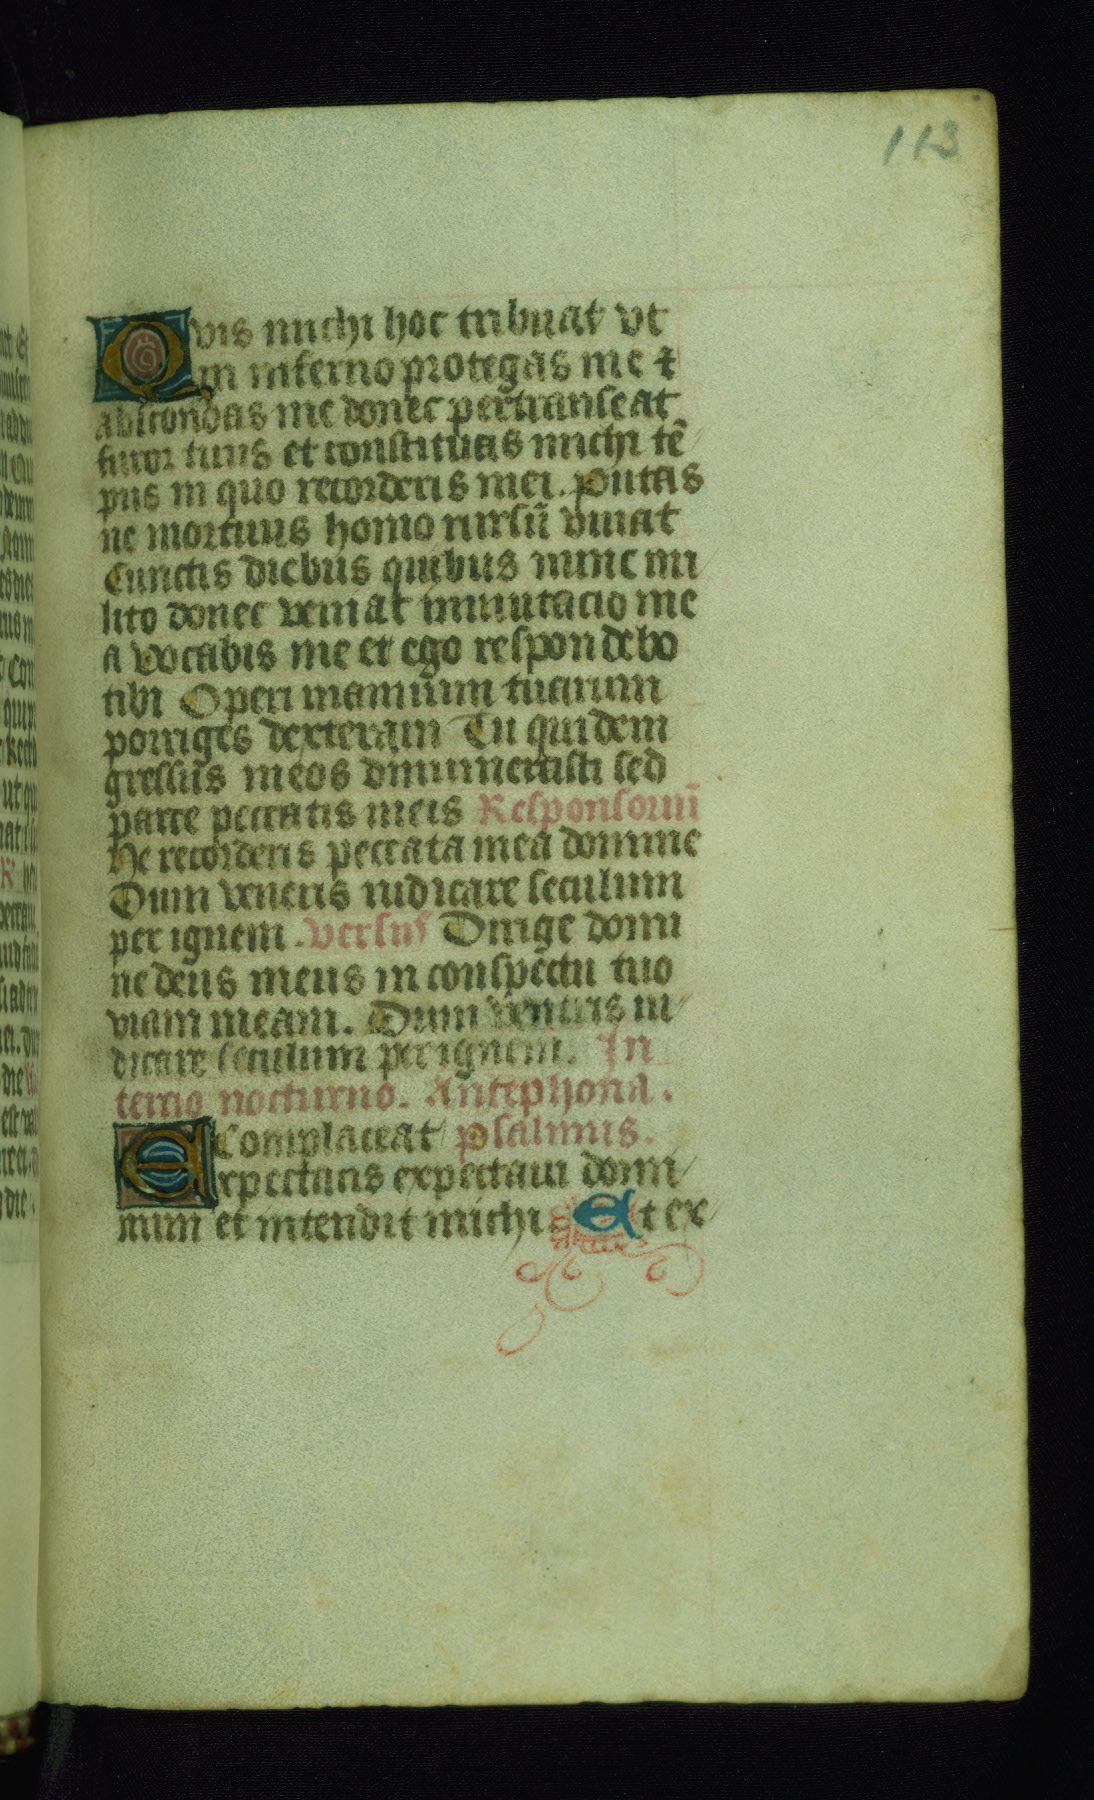 113
Quis michi hoc tribuat vt
in inferno protegas me ⁊
abscondas me donec pertranseat
furor tuus et constituas michi tē
pus in quo recorderis mei. Putas
ne mortuus homo rursū viuat
Cunctis diebus quibus nunc mi
lito donec veniat immutacio me
a Vocabis me et ego respondebo
tibi Operi manuum tuarum
porriges dexteram Tu quidem
gressus meos dinumerasti sed
parce peccatis meis Responsoriū
Ne recorderis peccata mea domine
Dum veneris iudicare seculum
per ignem. Versus Dirige domi
ne deus meus in conspectu tuo
viam meam. Dum veneris iu
dicare seculum per ignem. In
tercio nocturno. Antephona.
Complaceat psalmus.
Expectans expectaui domi
num et intendit michi. Et ex